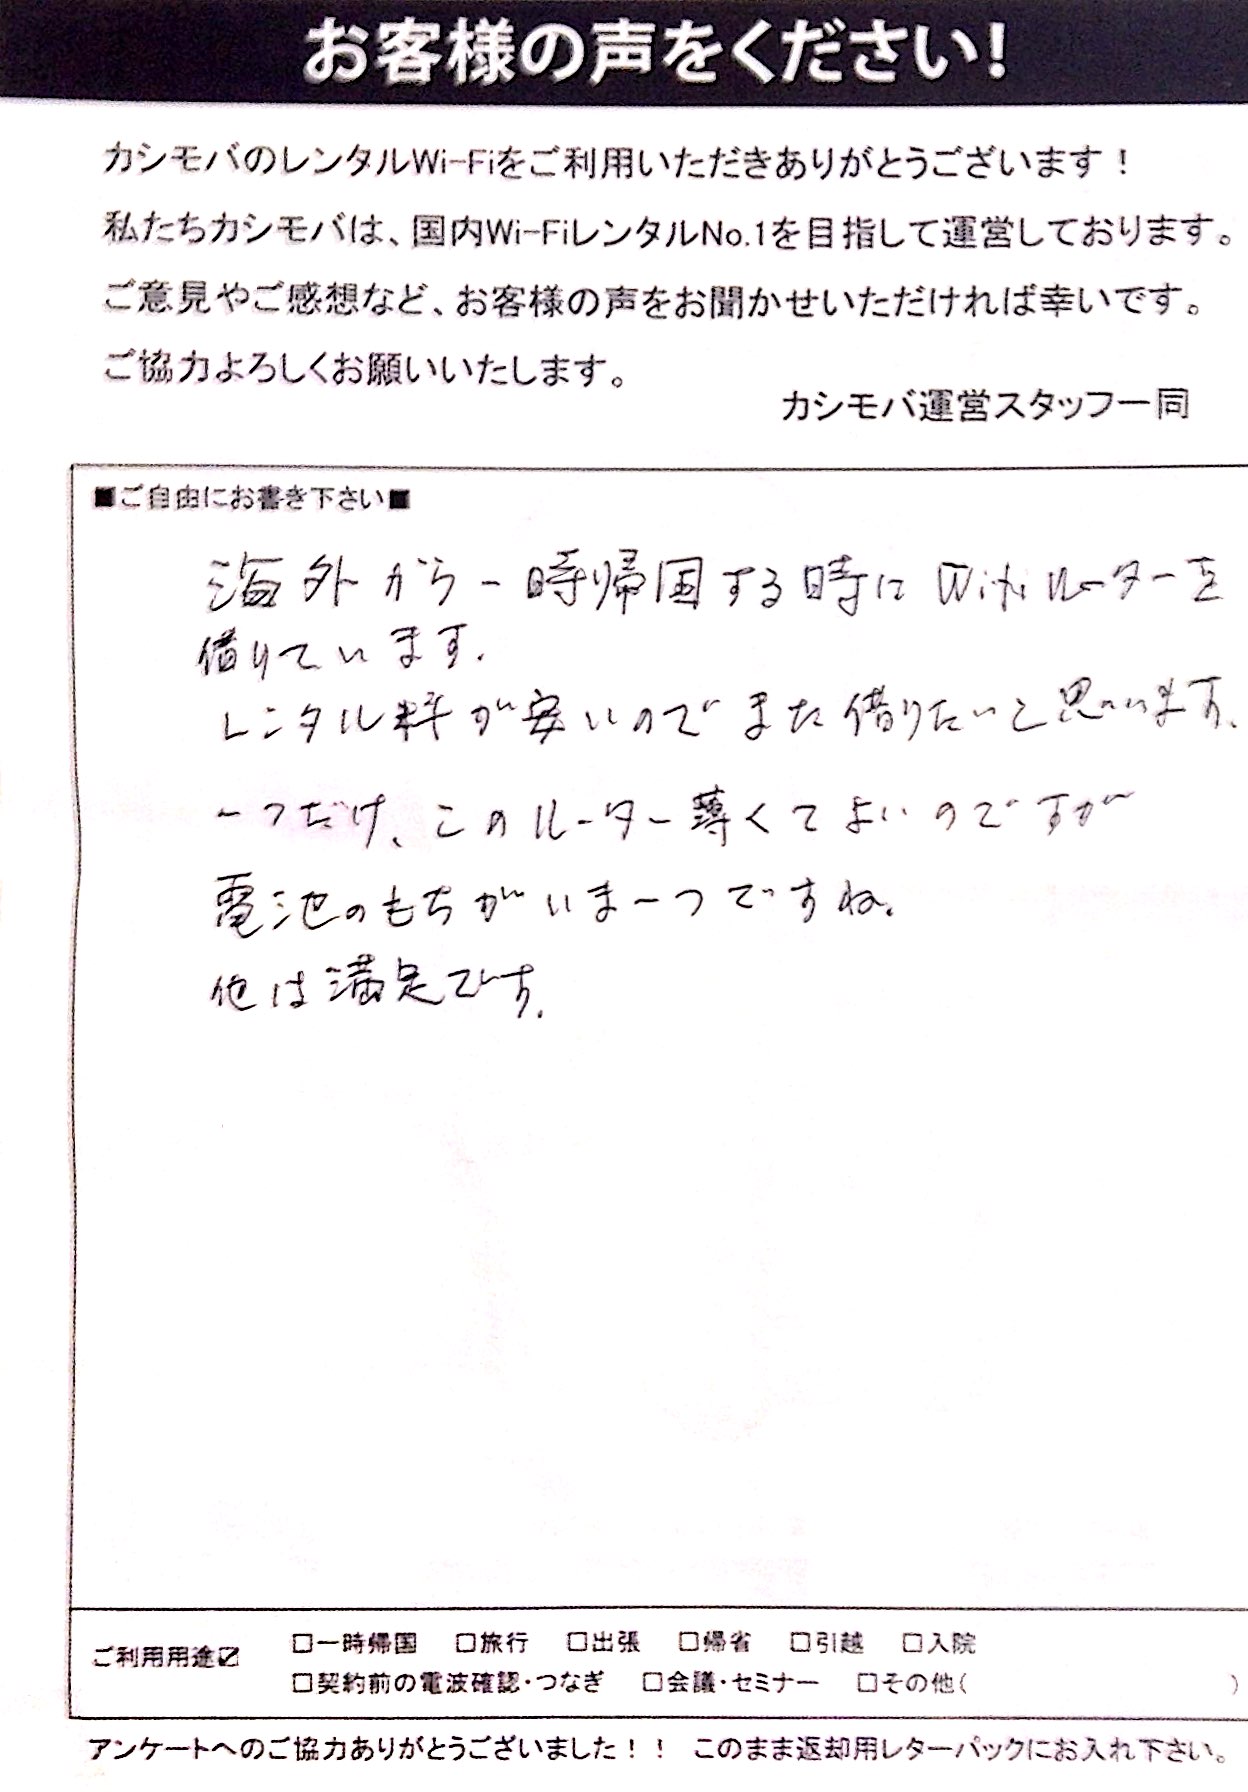 お客様の声をください!
カシモバのレンタルWi-Fiをご利用いただきありがとうございます！
私たちカシモバは、国内Wi-FiレンタルNo.1を目指して運営しております。
ご意見やご感想など、お客様の声をお聞かせいただければ幸いです。
ご協力よろしくお願いいたします。
カシモバ運営スタッフ一同
■ご自由にお書き下さい■
海外から一時帰国する時にWifiルーターを
借りています.
レンタル料が安いのでまた借りたいと思います.
一つだけ、このルーター薄くてよいのですが
電池のもちがいま一つですね.
他は満足です.
ご利用用途☑ □一時帰国 □旅行 □出張 □帰省 □引越 □入院
□契約前の電波確認・つなぎ □会議・セミナー □その他( )
アンケートへのご協力ありがとうございました！！ このまま返却用レターパックにお入れ下さい。